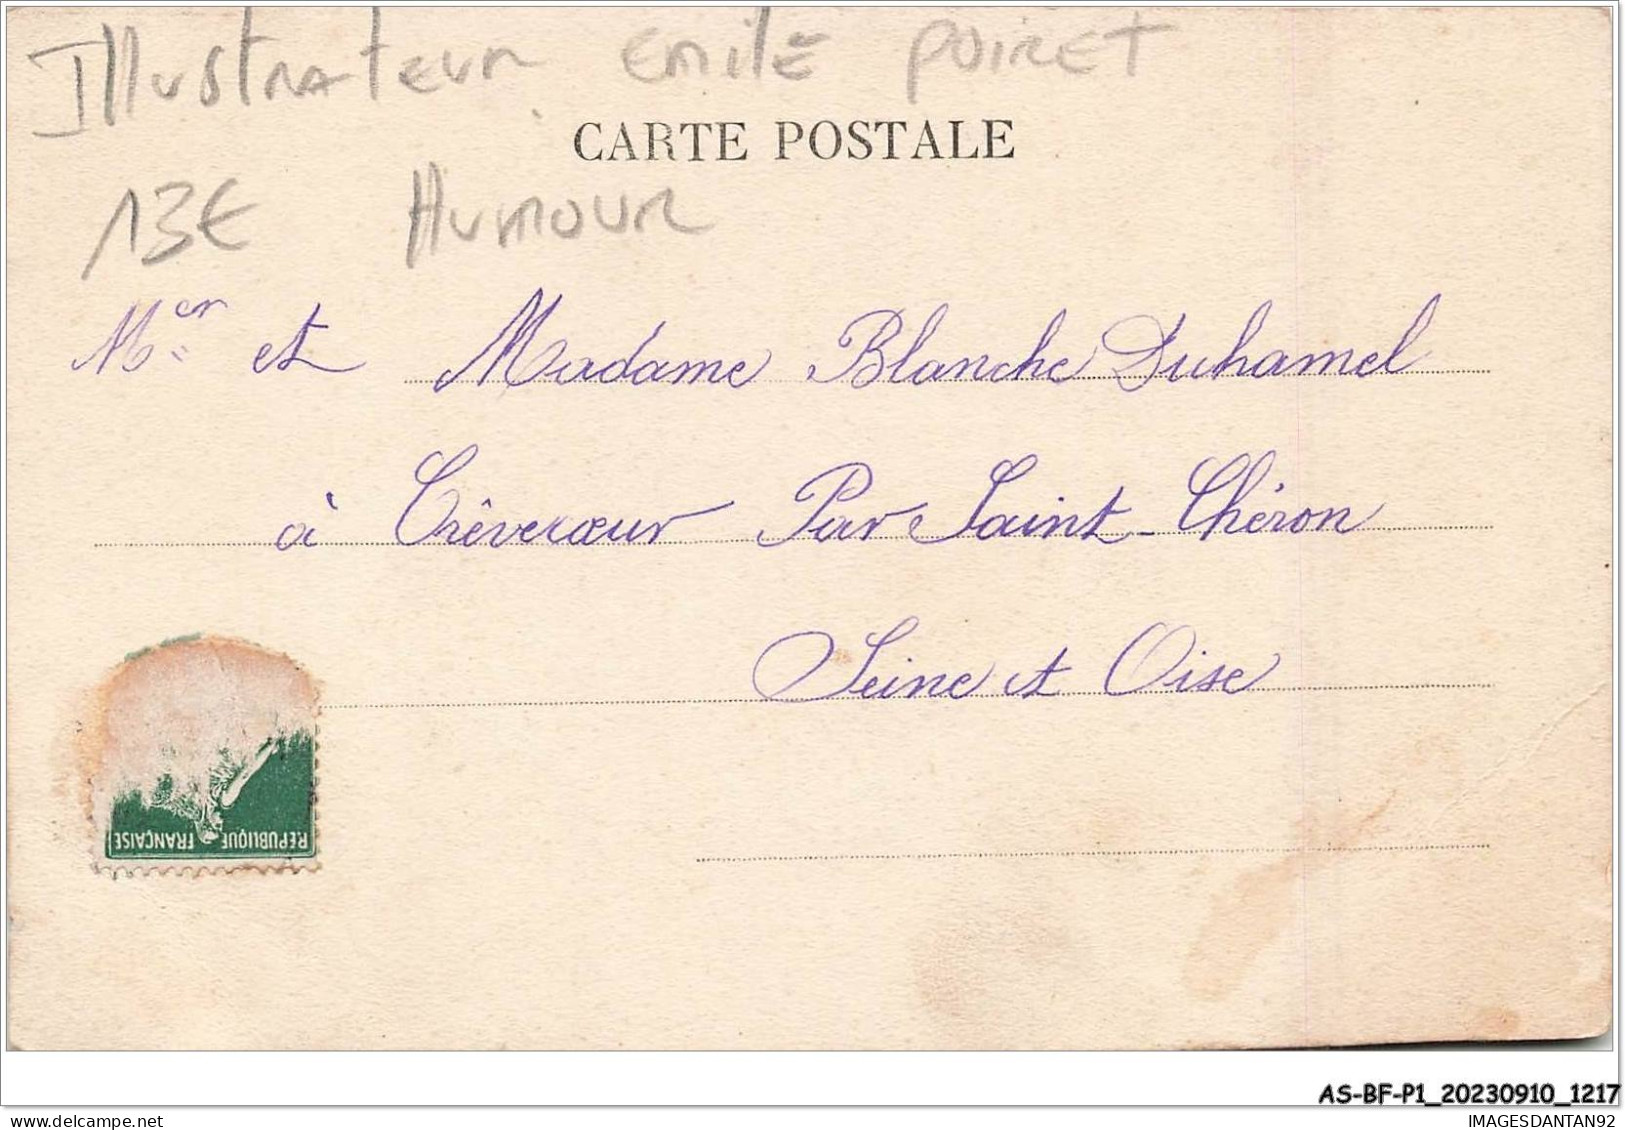 Illustrateur Emile POIRET
CARTE POSTALE
13€ HUMOUR
Mer et Madame Blanche Duhamel
à Crêvecœur Par Saint-Chéron
Seine et Oise
RÉPUBLIQUE FRANÇAISE
AS-BF-P1_20230910_1217
IMAGESDANTAN92